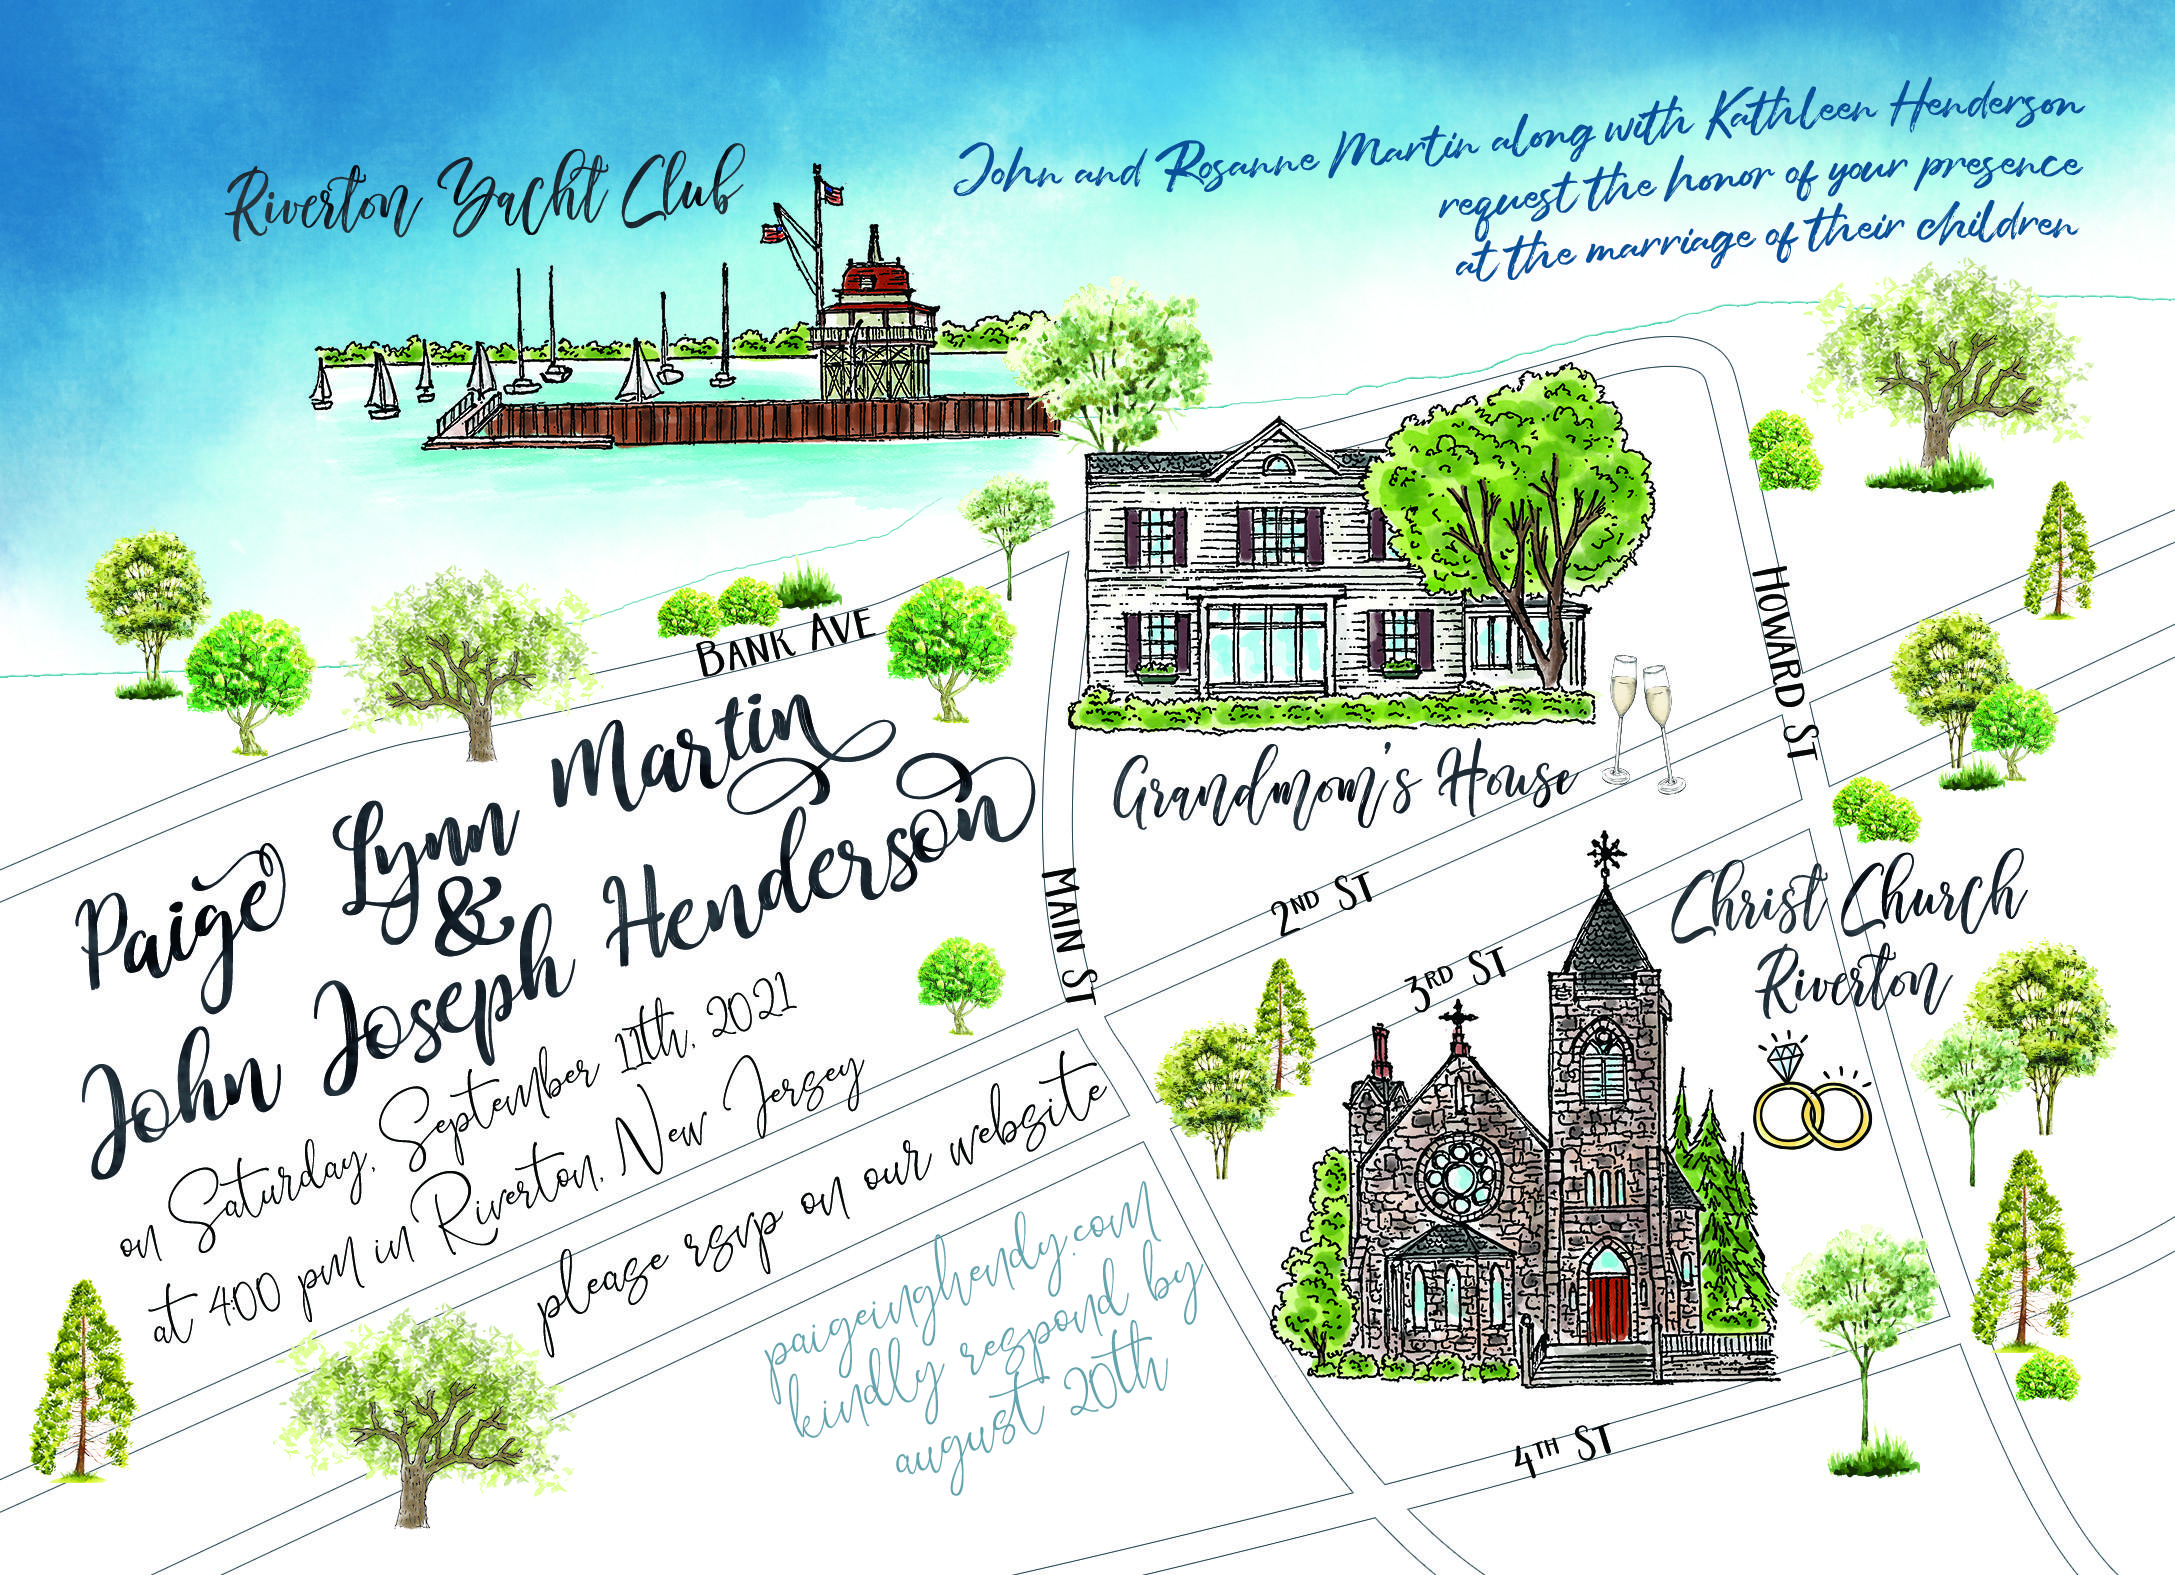 Riverton Yacht Club
John and Rosanne Martin along with Kathleen Henderson
request the honor of your presence
at the marriage of their children
Bank Ave
Howard St
Grandmom's House
Paige Lynn Martin
&
John Joseph Henderson
on Saturday, September 11th, 2021
at 4:00 pm in Riverton, New Jersey
Main St
2nd St
3rd St
Christ Church
Riverton
please rsvp on our website
paigeinghendy.com
kindly respond by
august 20th
4th St